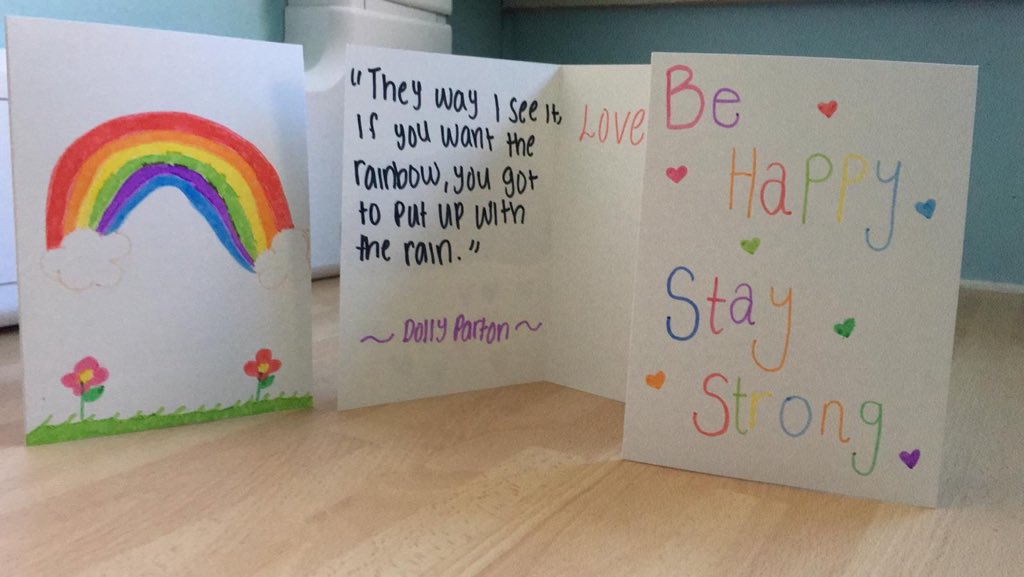 "They way I see it,
If you want the
rainbow, you got
to put up with
the rain."
~ Dolly Parton ~
Love
Be
Happy
Stay
Strong